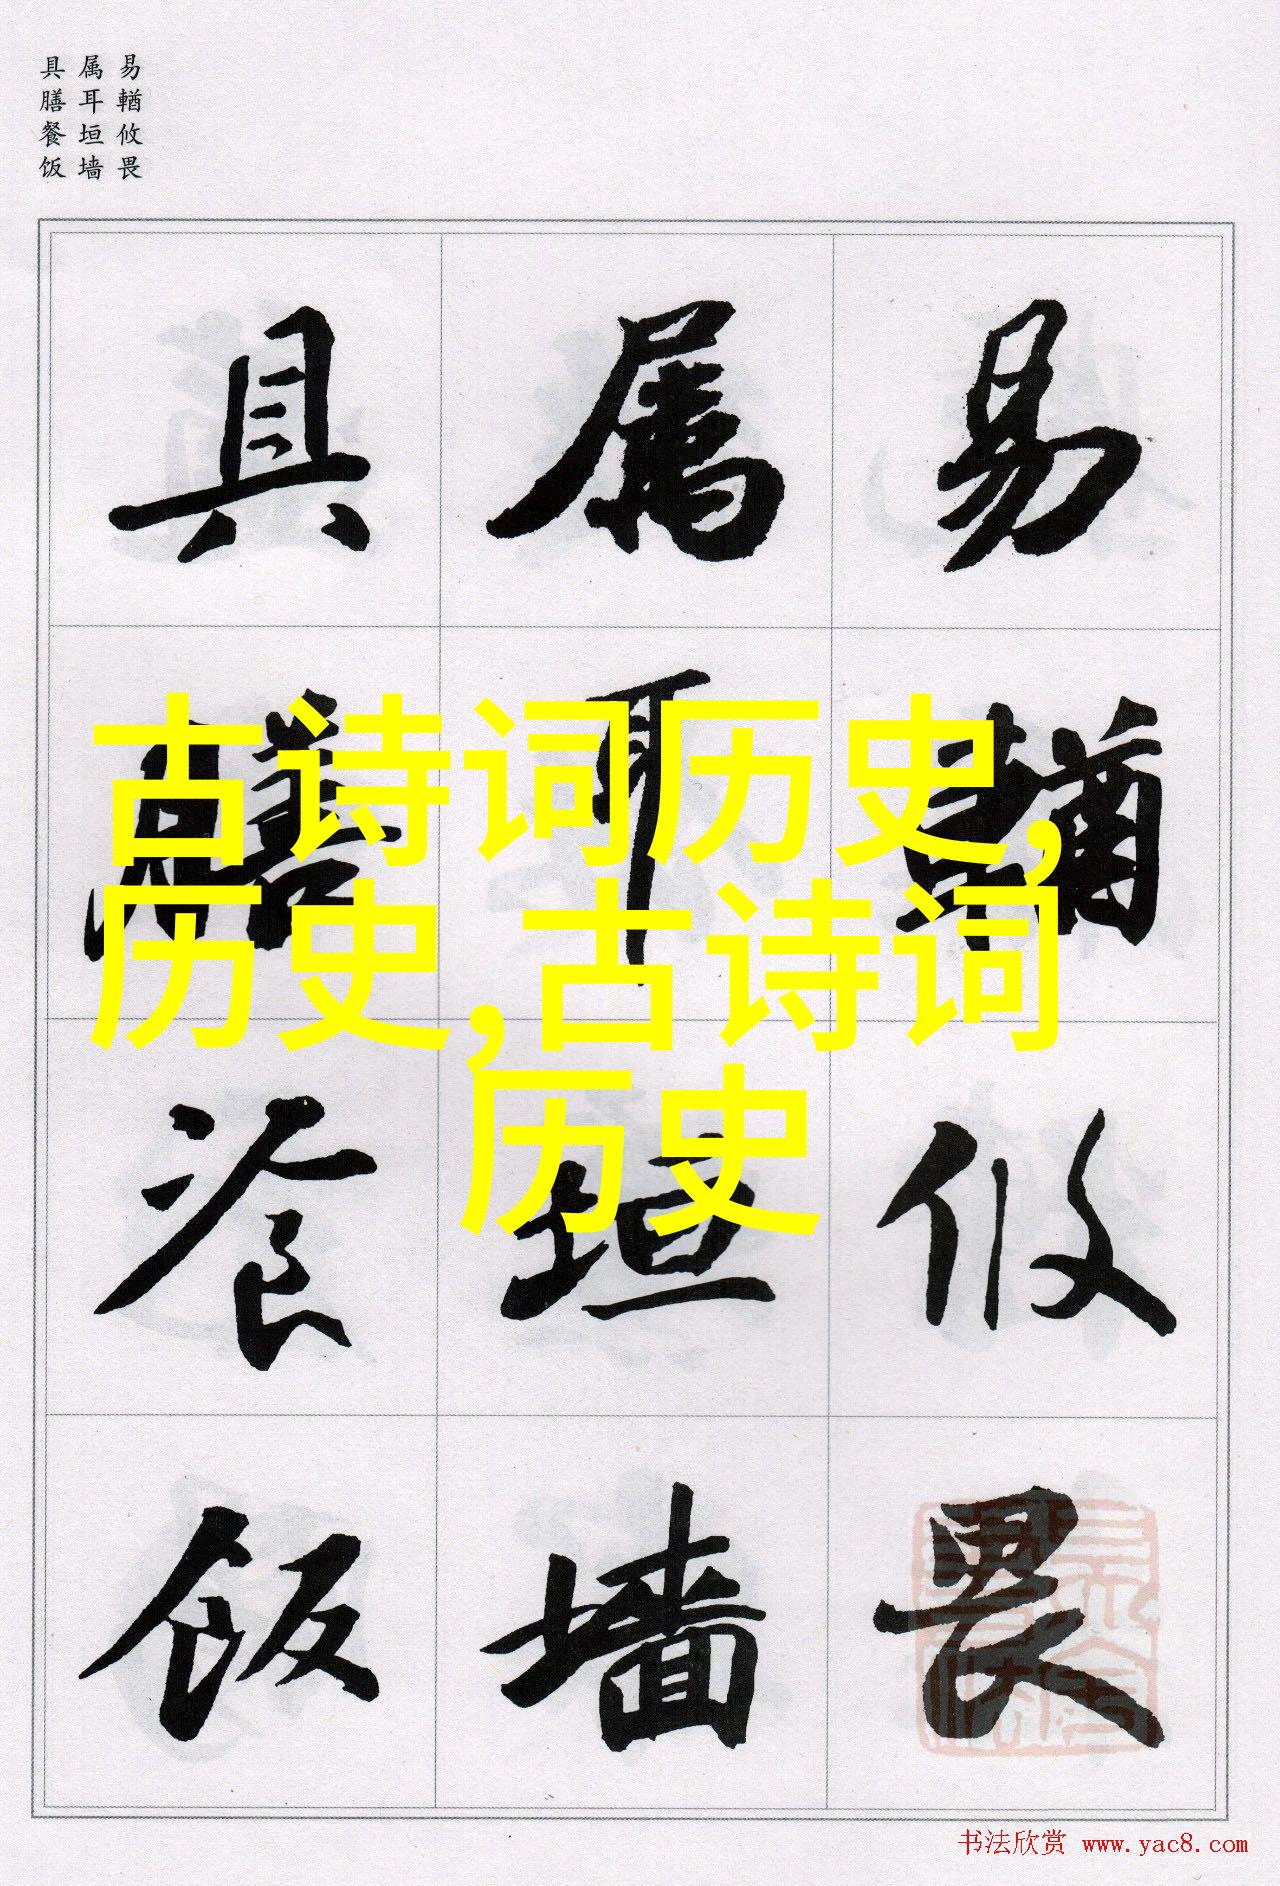 易輶攸畏
属耳垣墙
具膳餐饭
易輶攸畏
属耳垣墙
具膳餐饭
古诗词历史,
历史,古诗词
历史
书法欣赏 www.yac8.com